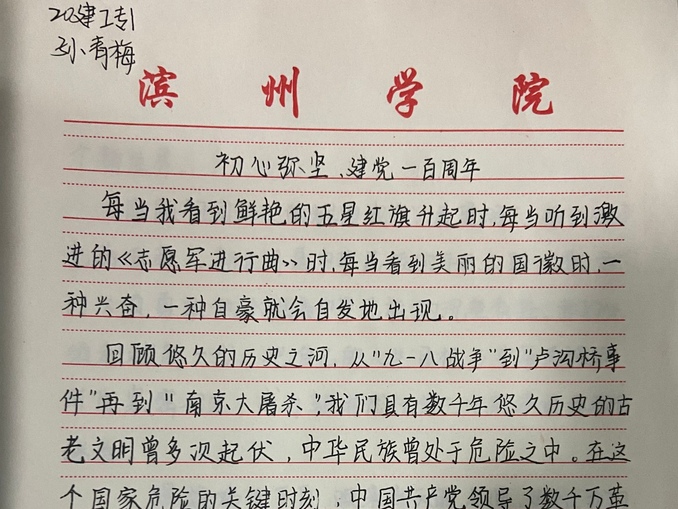 20建工专1
孙青梅
滨州学院
初心弥坚、建党一百周年
每当我看到鲜艳的五星红旗升起时,每当听到激
进的《志愿军进行曲》时,每当看到美丽的国徽时,一
种兴奋,一种自豪就会自发地出现。
回顾悠久的历史之河,从"九一八战争"到"卢沟桥事
件"再到"南京大屠杀",我们具有数千年悠久历史的古
老文明曾多次起伏,中华民族曾处于危险之中。在这
个国家危险的关键时刻,中国共产党领导了数千万革